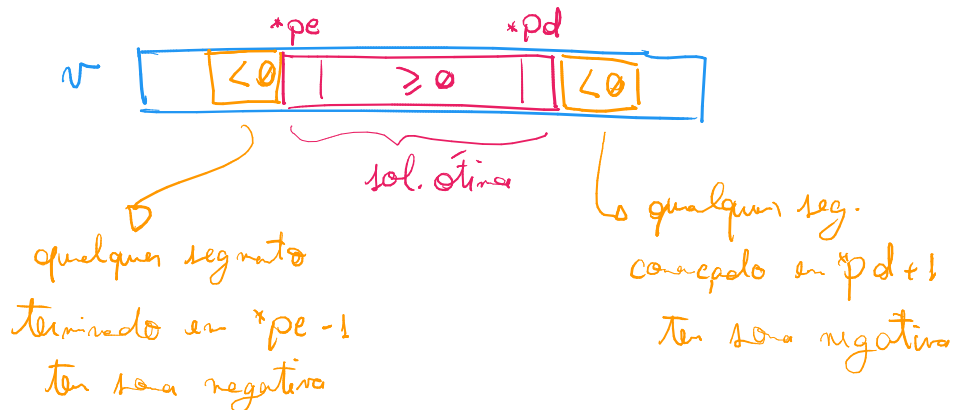 *pe *pd
v <0 ≥0 <0
sol. ótima
qualquer segmento
terminado em *pe-1
tem soma negativa
qualquer seg.
começado em *pd+1
tem soma negativa